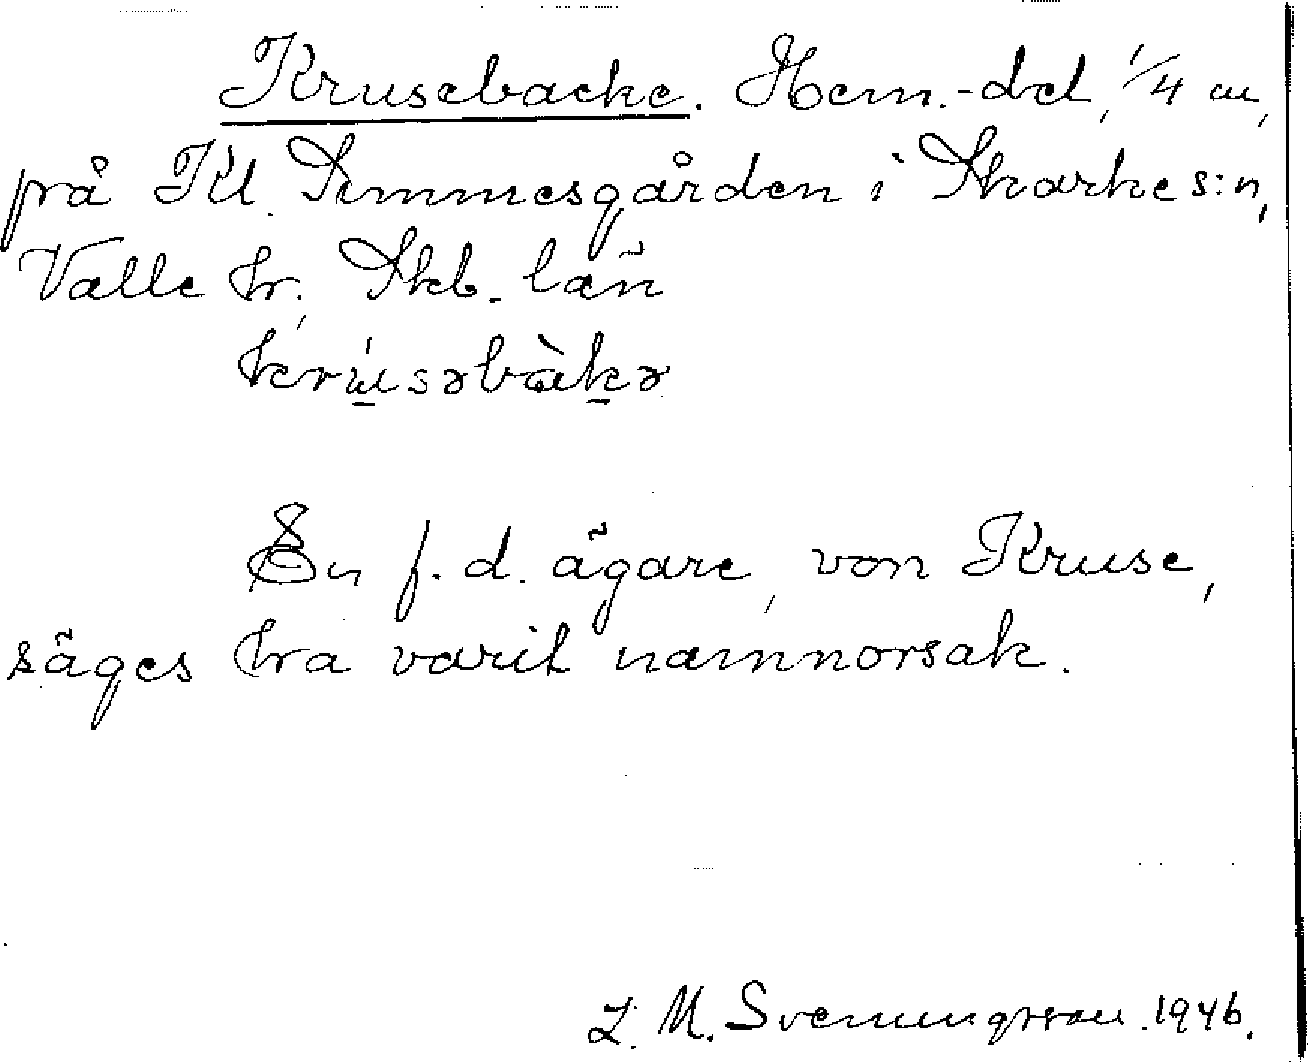 Krusebacke. Hem.-del, 1/4 m,
på Kl. Simmesgården i Skarke s:n,
Valle hr, Skb. län
krúsəbàkə
En f.d. ägare, von Kruse,
säges ha varit namnorsak.
L. M. Svenungsson. 1946.